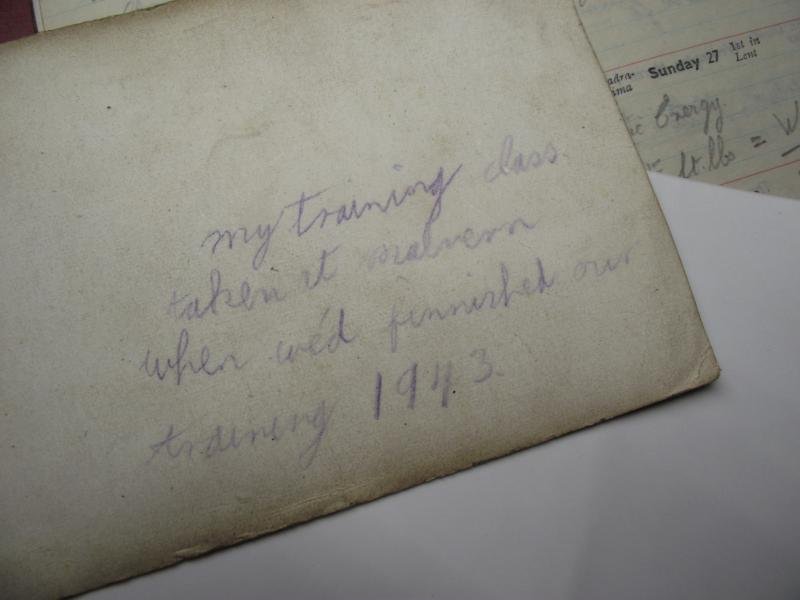 my training class.
taken at malvern
when we'd finnished our
training 1943.
Sunday 27 1st in
Lent
Energy
ft. lbs = W